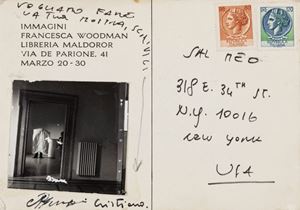 VOGLIAMO FARE
LA TUA MOSTRA, SCRIVICI
IMMAGINI
FRANCESCA WOODMAN
LIBRERIA MALDOROR
VIA DE PARIONE, 41
MARZO 20-30
Cristiano.
SAL MEO
318 E. 34th ST.
N.Y. 10016
NEW YORK
USA